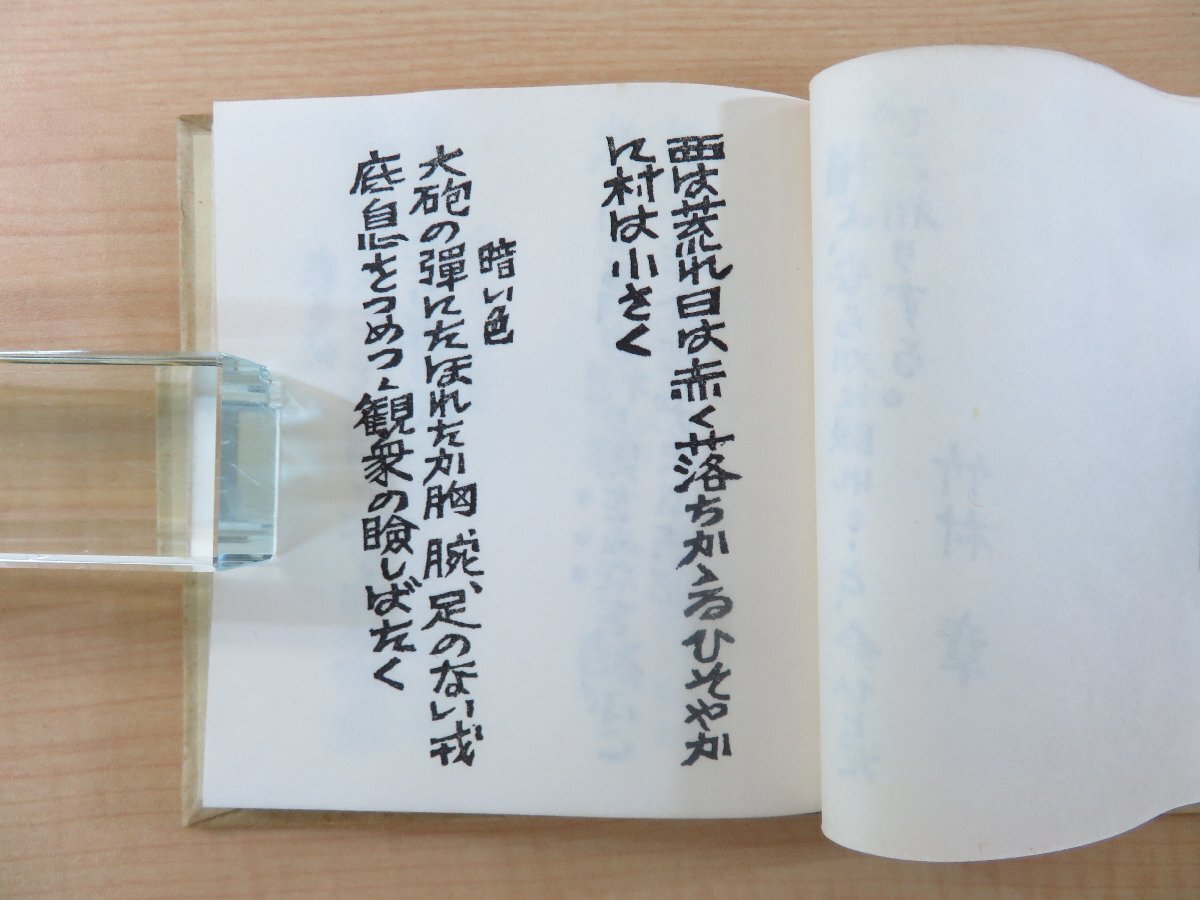 西は荒れ日は赤く落ちかゝるひそやか
に村は小さく
暗い色
大砲の彈にたほれたか胸、腕、足のない戎
底息をつめつゝ観衆の瞼しばたく